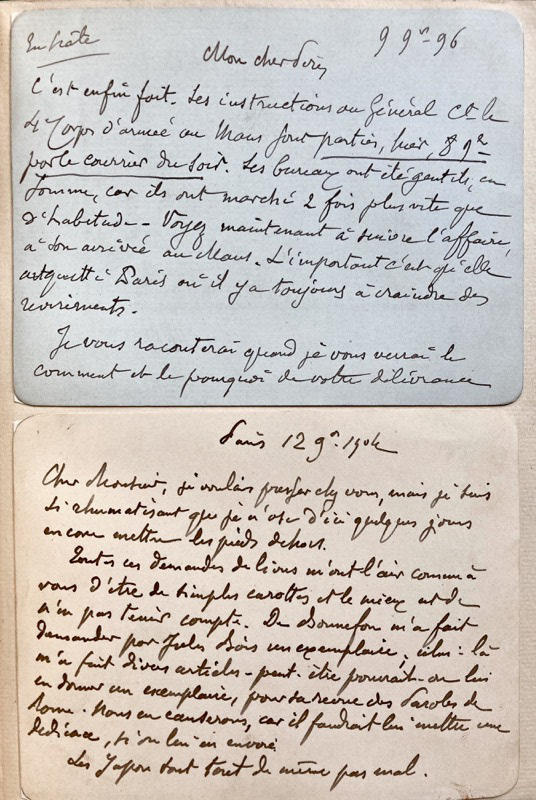 En hâte
9 9bre 96
Mon cher
C'est enfin fait. Les instructions au Général Ct le
4e Corps d'armée au Mans sont parties, hier, 8 9bre
par le courrier du soir. Les bureaux ont été gentils, en
somme, car ils ont marché 2 fois plus vite que
d'habitude - Voyez maintenant à suivre l'affaire,
à son arrivée au Mans. L'important c'est qu'elle
ait quitté Paris où il y a toujours à craindre des
revirements.
Je vous raconterai quand je vous verrai le
comment et le pourquoi de votre délivrance
Paris 12 9bre 1904
Cher Monsieur, je voulais passer chez vous, mais je suis
si rhumatisant que je n'ose d'ici quelques jours
encore mettre les pieds dehors.
Toutes ces demandes de livres m'ont l'air comme à
vous d'être de simples carottes et le mieux est de
n'en pas tenir compte. De Bonnefon m'a fait
demander par Jules Bois un exemplaire ; celui-là
m'a fait divers articles - peut-être pourrait-on lui
en donner un exemplaire, pour sa revue des Paroles de
Rome. Nous en causerons, car il faudrait lui mettre une
dédicace, si on lui en envoie
Les Japon sont tout de même pas mal.